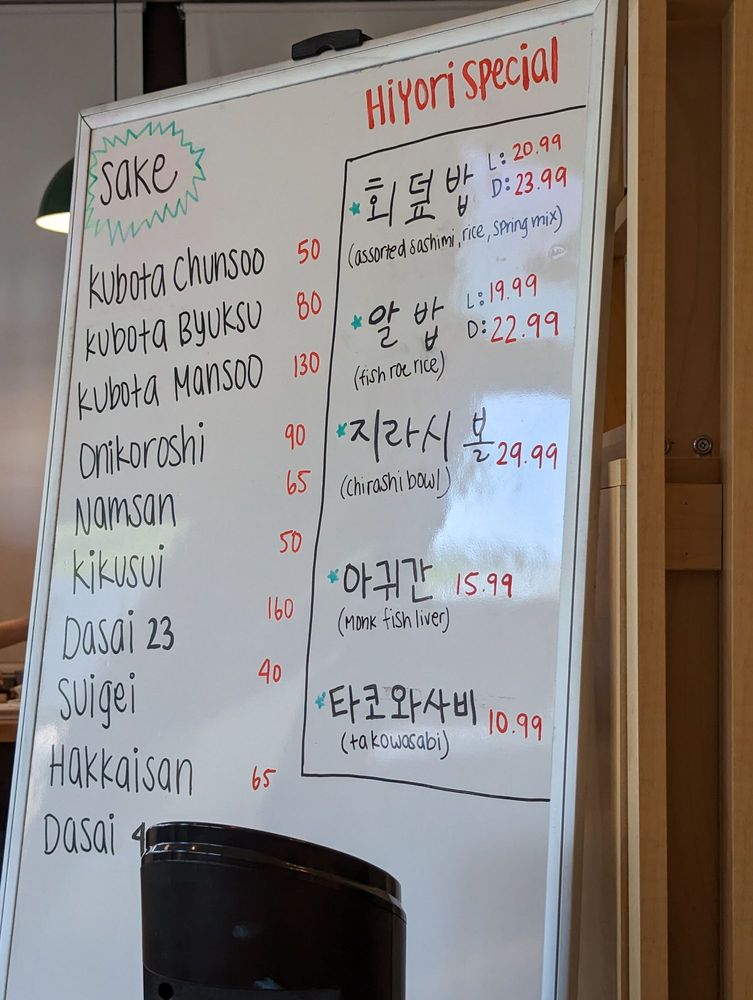 Hiyori special
sake
Kubota Chunsoo 50
Kubota Byuksu 80
Kubota Mansoo 130
Onikoroshi 90
Namsan 65
Kikusui 50
Dasai 23 160
Suigei 40
Hakkaisan 65
Dasai 4
회덮밥 L: 20.99
D: 23.99
(assorted sashimi, rice, spring mix)
알밥 L: 19.99
D: 22.99
(fish roe rice)
지라시 볼 29.99
(chirashi bowl)
아귀간 15.99
(Monk fish liver)
타코와사비 10.99
(takowasabi)